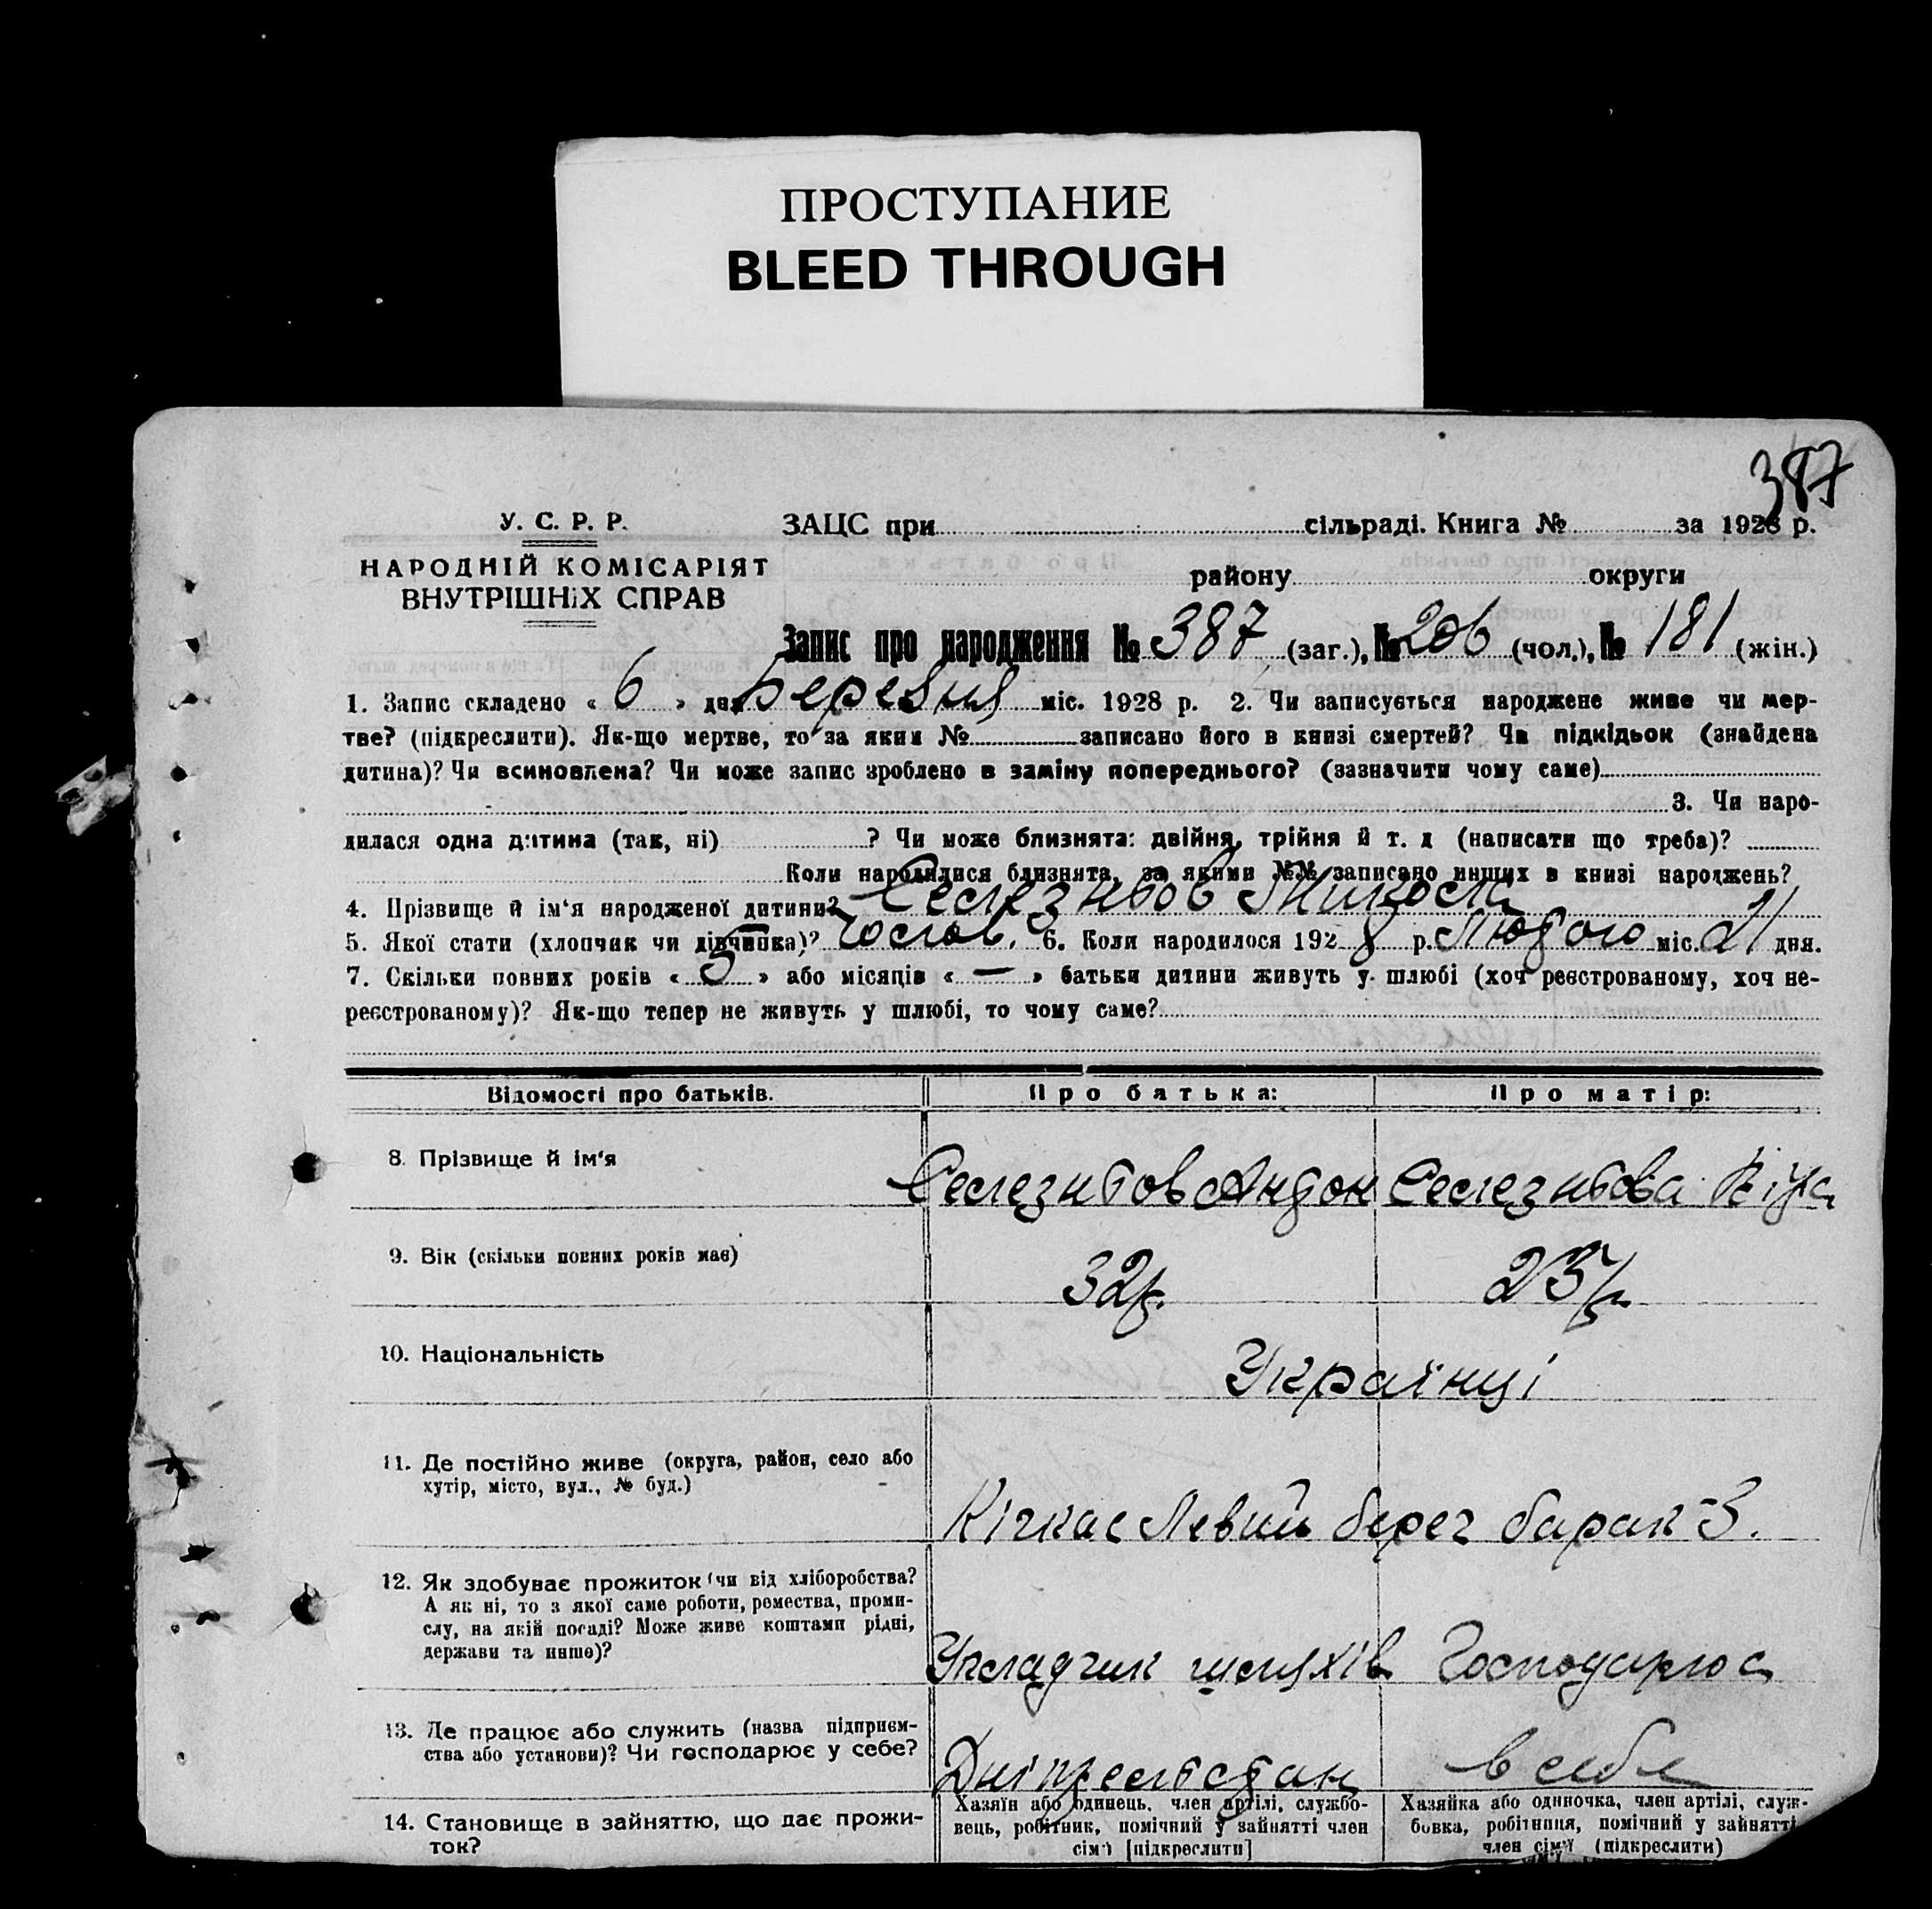 ПРОСТУПАНИЕ
BLEED THROUGH
387
У. С. Р. Р.
НАРОДНІЙ КОМІСАРІЯТ
ВНУТРІШНіХ СПРАВ
ЗАЦС при сільраді. Книга № за 1928 р.
району округи
Запис про народження № 387 (заг.), № 206 (чол.), № 181 (жін.)
1. Запис складено « 6 » дня Березня міс. 1928 р. 2. Чи записується народжене живе чи мер-
тве? (підкреслити). Як-що мертве, то за яким № записано його в книзі смертей? Чи підкідьок (знайдена
дитина)? Чи всиновлена? Чи може запис зроблено в заміну попереднього? (зазначити чому саме)
3. Чи наро-
дилася одна дитина (так, ні) ? Чи може близнята: двійня, трійня й т. д (написати що треба)?
Коли народилися близнята, за якими №№ записано инших в книзі народжень?
4. Прізвище й ім'я народженої дитини? Селезньов Микола
5. Якої стати (хлопчик чи дівчинка)? Чолов. 6. Коли народилося 192 8 р. Лютого міс. 21 дня.
7. Скільки повних років « 5 » або місяців « — » батьки дитини живуть у шлюбі (хоч реєстрованому, хоч не-
реєстрованому)? Як-що тепер не живуть у шлюбі, то чому саме?
Відомості про батьків. Про батька: Про матір:
8. Прізвище й ім'я Селезньов Антон Селезньова Віра
9. Вік (скільки повних років має) 32 р. 23 р.
10. Національність Українці
11. Де постійно живе (округа, район, село або
хутір, місто, вул., № буд.)
Кічкас Левий берег барак 3.
12. Як здобуває прожиток (чи від хліборобства?
А як ні, то з якої саме роботи, ремества, проми-
слу, на якій посаді? Може живе коштами рідні,
держави та инше)?
Укладчик шляхів Господарює
13. Де працює або служить (назва підприєм-
ства або установи)? Чи господарює у себе?
в себе
14. Становище в зайняттю, що дає прожи-
ток?
Хазяїн або одинець, член артілі, службо-
вець, робітник, помічний у зайнятті член
сім'ї [підкреслити]
Хазяйка або одиночка, член артілі, служ-
бовка, робітниця, помічний у зайнятті
член сім'ї (підкреслити)